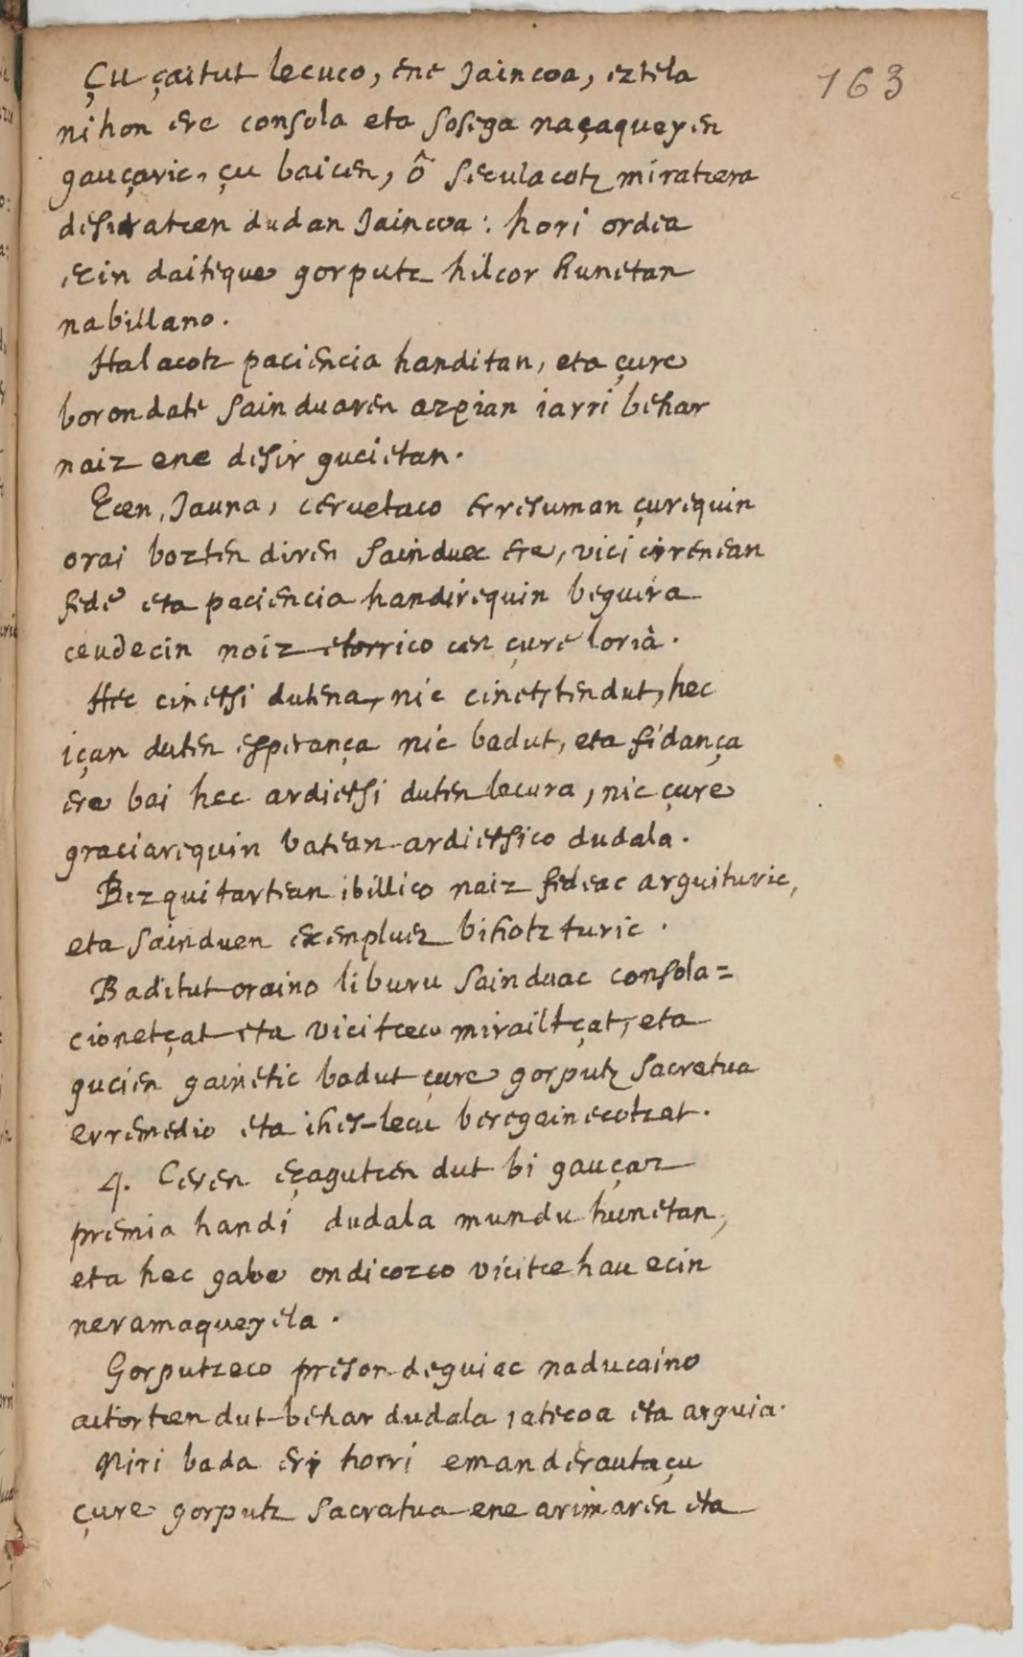 163
Çu çaitut lecuco, ene Jaincoa, eztela
nihon ere consola eta sosega naçaqueyen
gauçaric, çu baicen, ô seculacotz miratcera
desiratcen dudan Jaincoa: hori ordea
ecin daiteque gorputz hilcor hunetan
nabillano.
Halacotz paciencia handitan, eta çure
borondate sainduaren azpian iarri behar
naiz ene desir gucietan.
Ecen, Jauna, ceruetaco erresuman çurequin
orai bozten diren sainduec ere, vici cirenean
fede eta paciencia handirequin beguira
ceudecin noiz etorrico cen çure loria.
Hec cinetsi dutena, nic cinetsten dut, hec
içan duten esperança nic badut, eta fidança
ere bai hec ardietsi duten lecura, nic çure
graciarequin batean ardietsico dudala.
Bizquitartean ibillico naiz fedeac arguituric,
eta sainduen exempluez bihotzturic.
Baditut oraino liburu sainduac consola=
cionetçat eta vicitceco mirailtçat, eta
gucien gainetic badut çure gorputz sacratua
erremedio eta ihes-lecu beregainecotzat.
4. Ceren eçagutcen dut bi gauçaz
premia handi dudala mundu hunetan,
eta hec gabe ondicozco vicitce hau ecin
neramaqueyela.
Gorputzeco preson deguiac naducaino
aitortcen dut behar dudala iatecoa eta arguia.
Niri bada eri horri eman derautaçu
çure gorputz sacratua ene arimaren eta